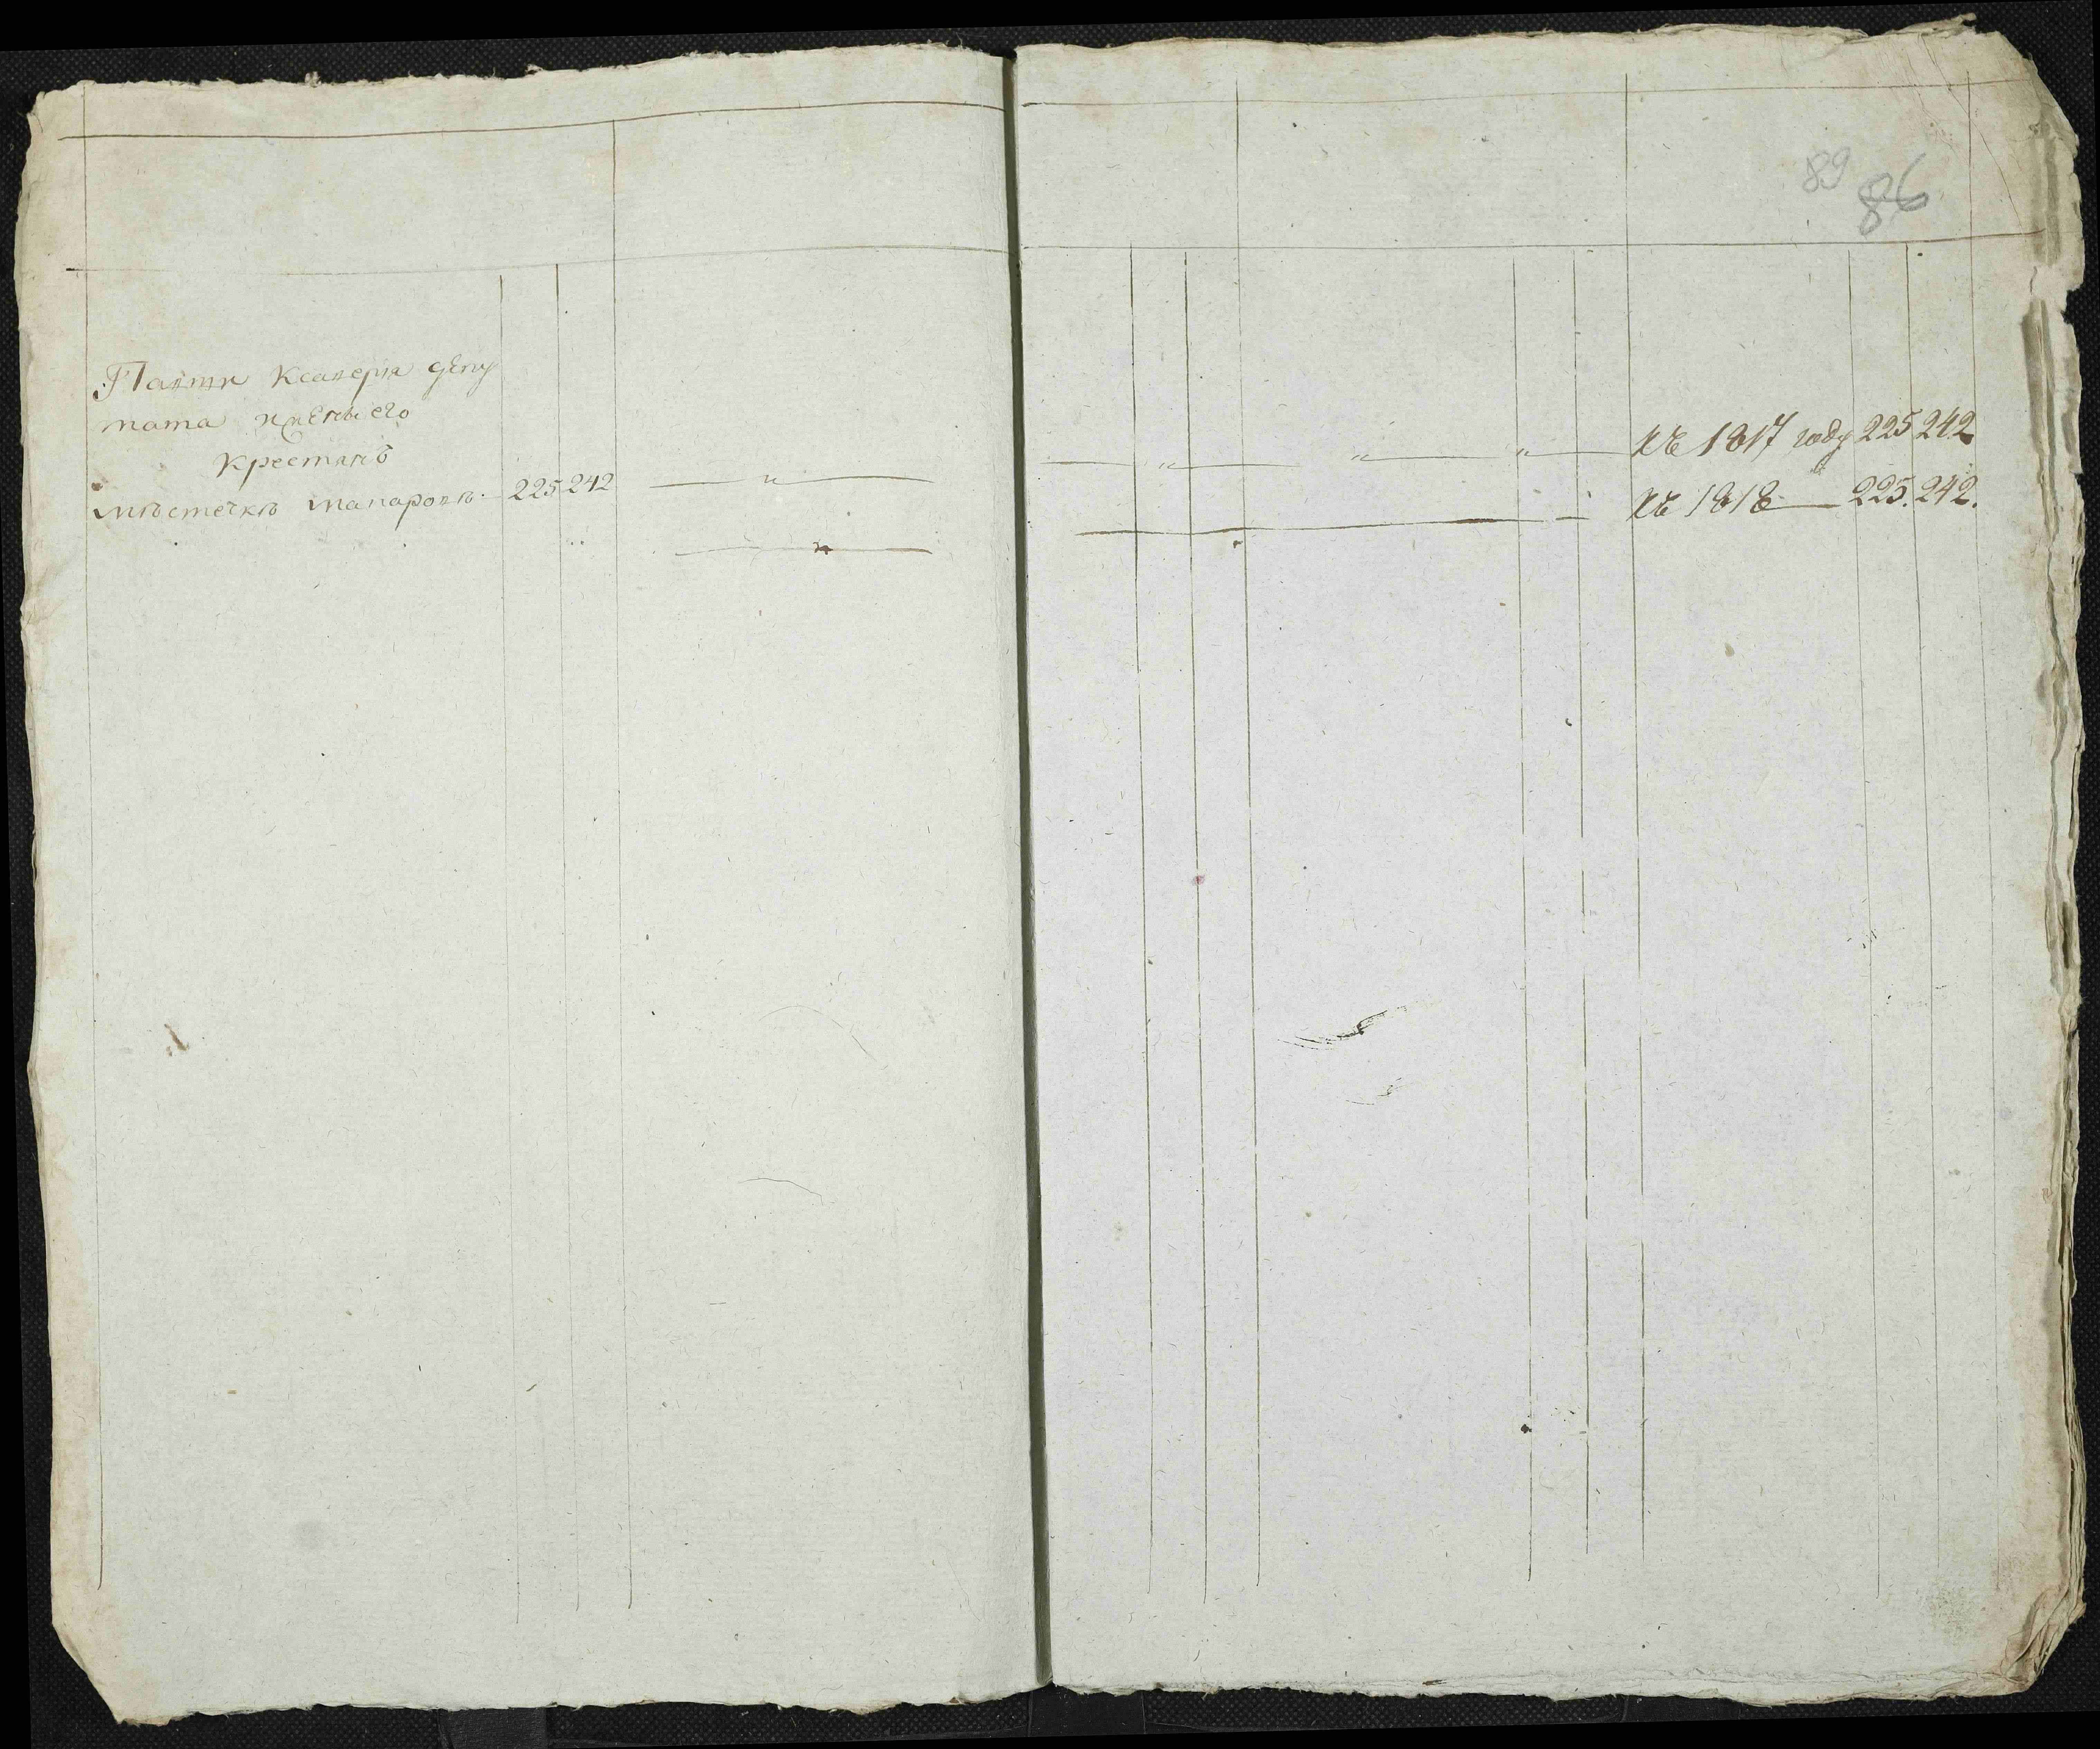 89
86
Плятти Ксаверія депу
тата именія его
крестянъ
мѣстечкѣ макаровѣ. 225 242 — „ —
— „ — „ — „ — къ 1817 году 225 242
къ 1818 — 225. 242.
— „ —